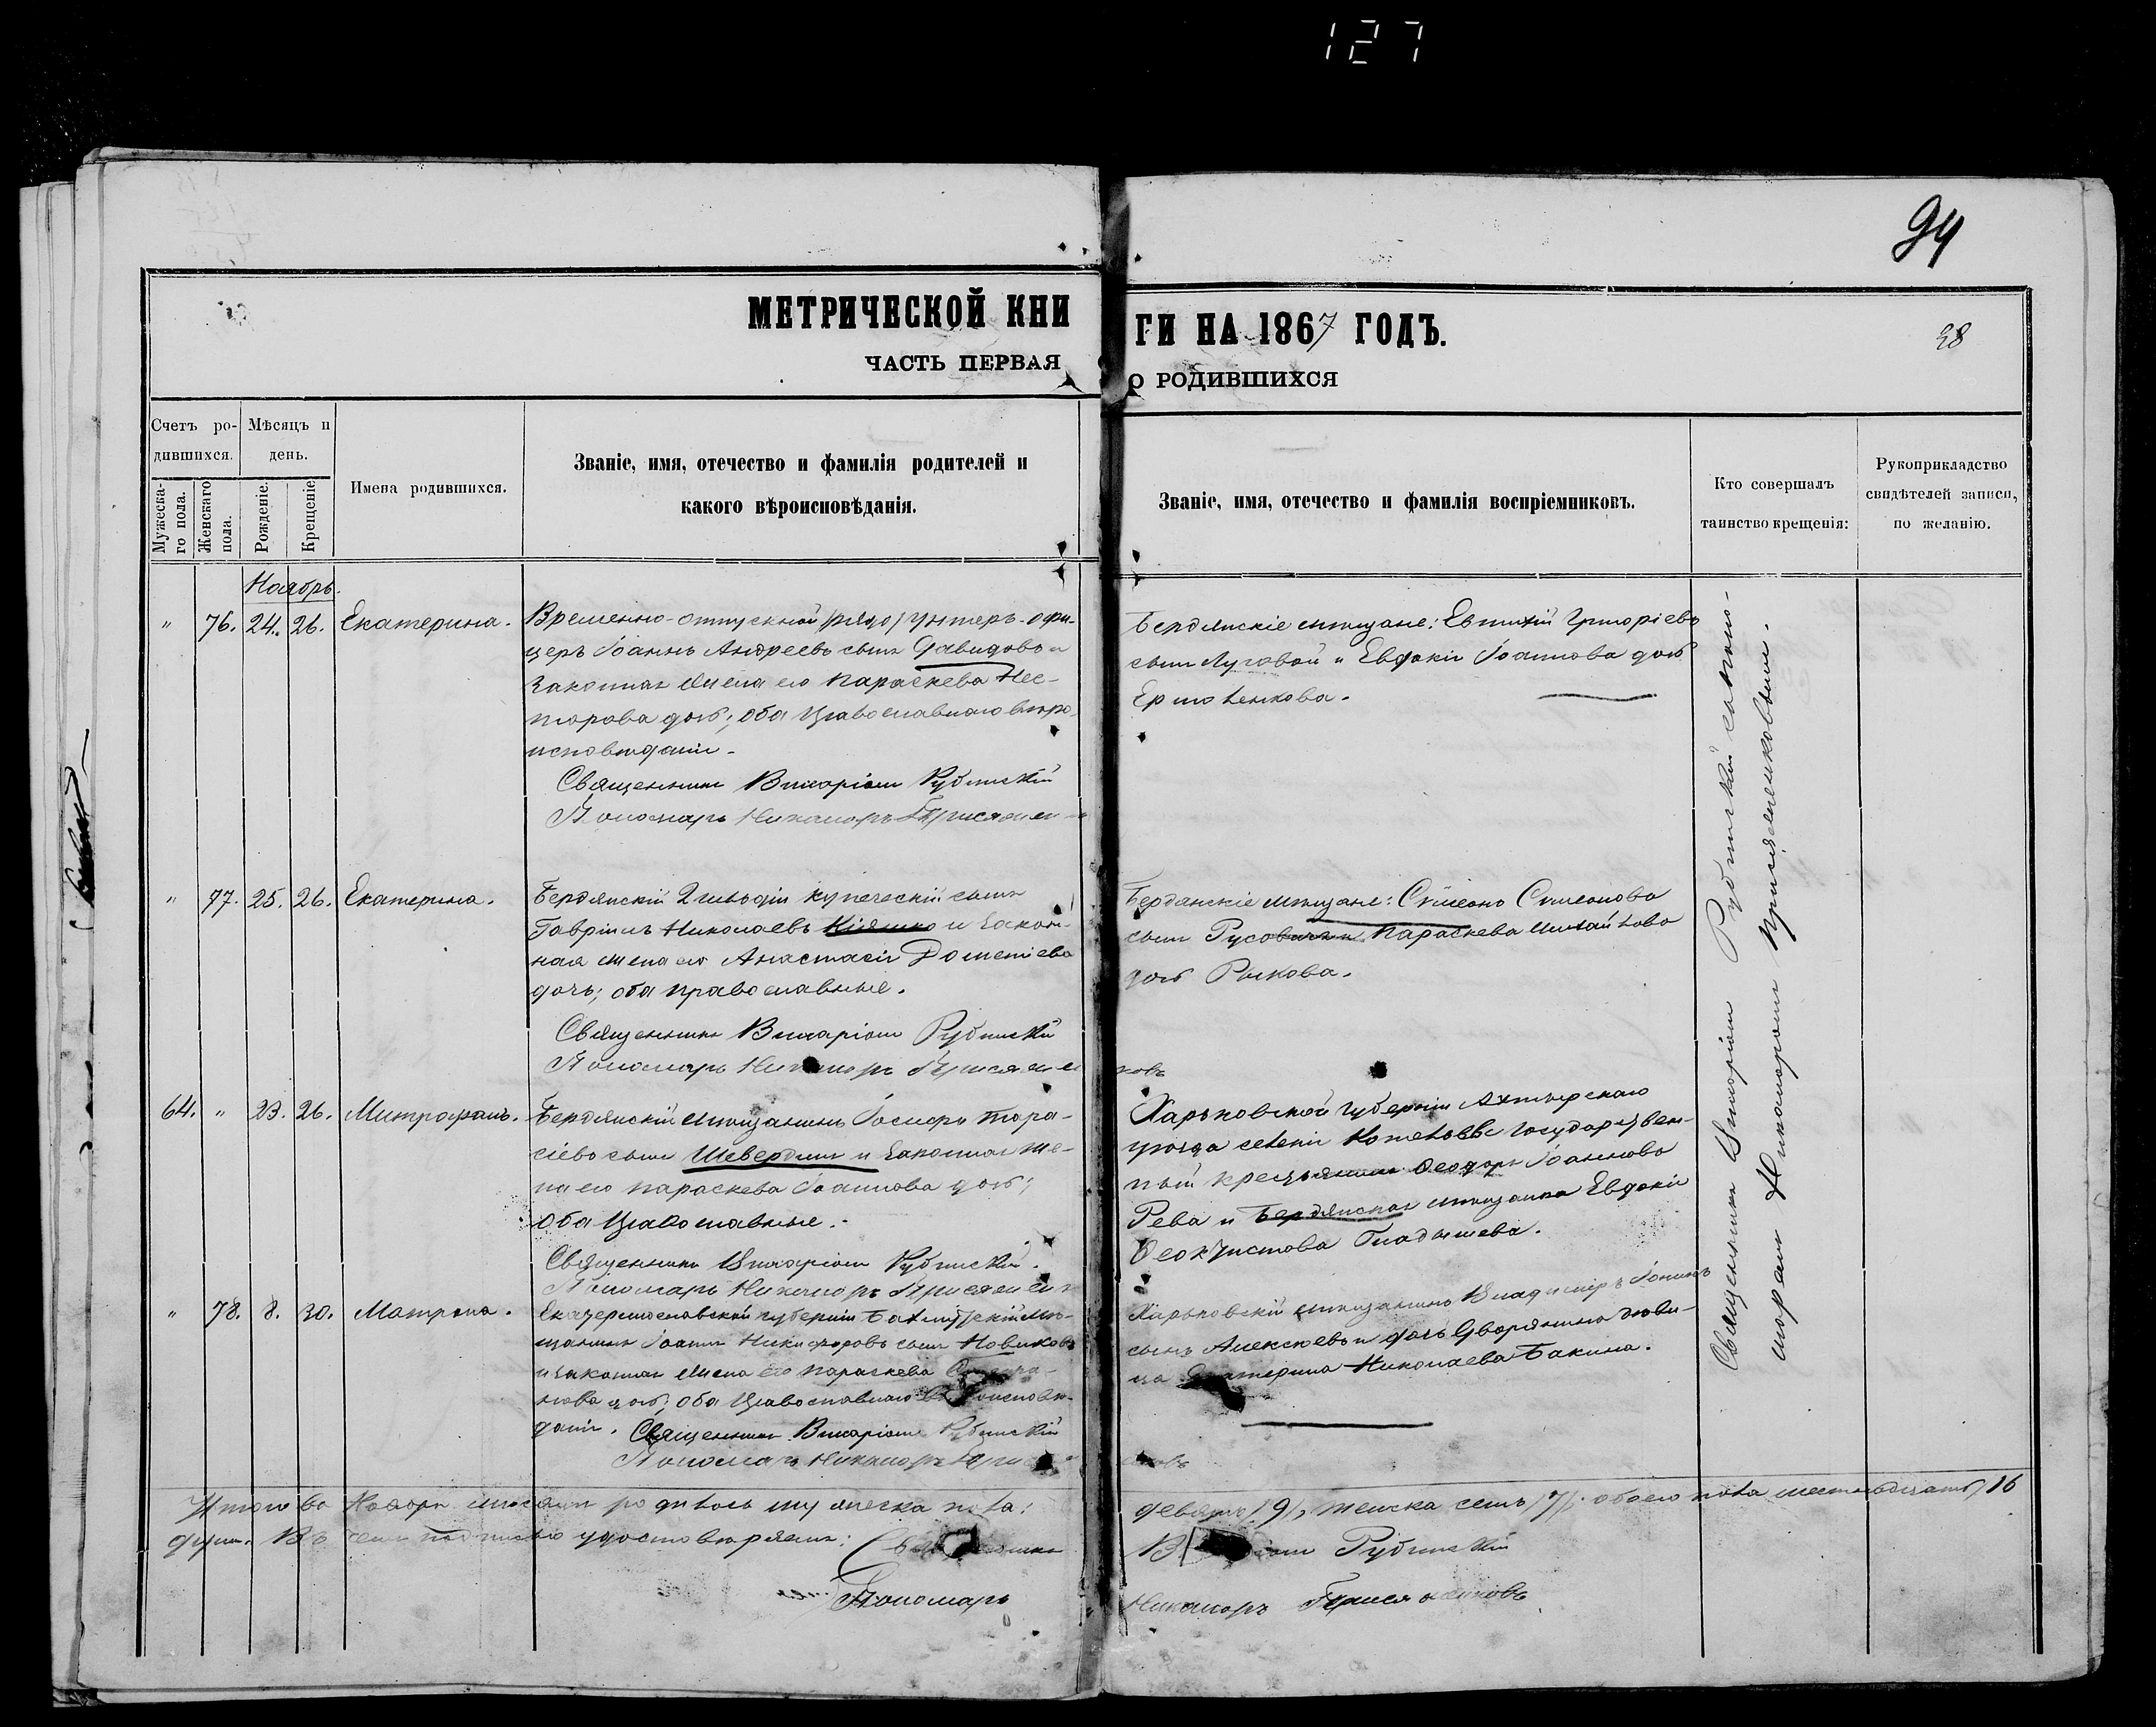 127
94
МЕТРИЧЕСКОЙ КНИ
ГИ НА 1867 ГОДЪ.
38
ЧАСТЬ ПЕРВАЯ
О РОДИВШИХСЯ
Счетъ ро-
дившихся.
Мужеска-
го пола.
Женскаго
пола.
Мѣсяцъ и
день.
Рожденіе.
Крещеніе
Имена родившихся.
Званіе, имя, отечество и фамилія родителей и
какого вѣроисповѣданія.
Званіе, имя, отечество и фамилія воспріемниковъ.
Кто совершалъ
таинство крещенія:
Рукоприкладство
свидѣтелей записи,
по желанію.
Ноябрь.
" 76. 24. 26. Екатерина.
Временно-отпускной унтеръ-офи-
церъ Іоаннъ Андреевъ сынъ Давидовъ и
законная жена его Параскева Нес-
торова дочь; оба Православнаго вѣро-
исповѣданія.
Священникъ Викаріонъ Рубинскій
Пономарь Никаноръ Присяжнен
Бердянскіе мѣщане: Евтихій Григоріевъ
сынъ Луговой и Евдокія Іоаннова дочь
Ермоленкова.
" 77. 25. 26. Екатерина.
Бердянскій 2 гильдіи купеческій сынъ
Гавріилъ Николаевъ Кіяшко и закон-
ная жена его Анастасія Дометіева
дочь; оба православные.
Священникъ Викаріонъ Рубинскій
Пономарь Никаноръ Присяжнен
ковъ
Бердянскіе мѣщане: Симеонъ Симеоновъ
сынъ Русовичъ и Параскева Михайлова
дочь Рыкова.
64. " 23. 26. Митрофанъ.
Бердянскій мѣщанинъ Іосифъ Тора-
сіевъ сынъ Шевердинъ и законная же-
на его Параскева Іоаннова дочь;
оба Православные.
Священникъ Викаріонъ Рубинскій.
Пономарь Никаноръ Присяжнен
Харьковской губерніи Ахтырскаго
уѣзда селенія Котельвы государствен-
ный крестьянинъ Ѳеодоръ Іоанновъ
Рева и Бердянская мѣщанка Евдокія
Ѳеоктистова Гладышева.
" 78. 8. 30. Матрона.
Екатеринославской губерніи Бахмутскій мѣ-
щанинъ Іоаннъ Никифоровъ сынъ Новиковъ
и законная жена его Параскева
нова дочь; оба Православнаго вѣроисповѣ-
данія. Священникъ Викаріонъ Рубинскій
Пономарь Никаноръ Прися
Харьковскій мѣщанинъ Владиміръ Іоанновъ
сынъ Алексѣевъ и дочь Дворянина дѣви-
ца Екатерина Николаева Бакина.
Священникъ Викаріонъ Рубинскій съ поно-
маремъ Никаноромъ Присяжненковымъ.
Итого въ Ноябрѣ мѣсяцѣ родилось мужеска пола:
девять /9/, женска семь /7/. обоего пола шестнадцать /16
душъ. Въ чемъ подписью удостовѣряемъ: Священникъ
Рубинскій
Пономарь
Никаноръ Присяжненковъ